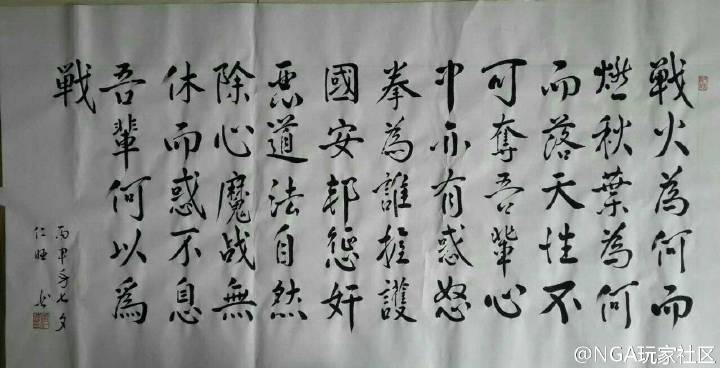 戦火為何而
燃秋葉為何
而落天性不
可奪吾輩心
中亦有惑怒
拳為誰握護
國安邦懲奸
悪道法自然
除心魔战無
休而惑不息
吾輩何以為
戦
丙申年七夕
仁 书
@NGA玩家社区